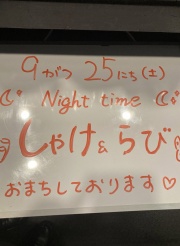 9がつ 25にち(土)
Night time
しゃけ&らび
おまちしております♡